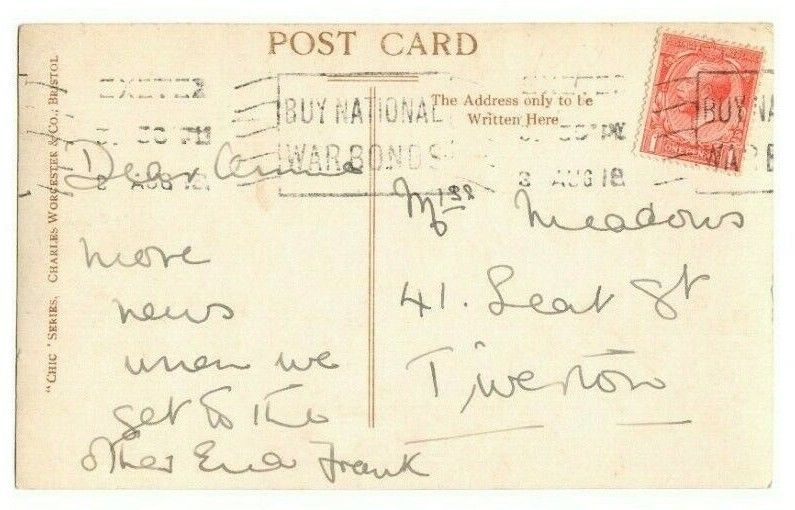 POST CARD
EXETER
3. 30 PM
3 AUG 18
BUY NATIONAL
WAR BONDS
EXETER
3. 30 PM
3 AUG 18
BUY NA
WAR B
The Address only to be
Written Here
"CHIC" SERIES, CHARLES WORCESTER & CO., BRISTOL
Dear Annie
more
news
when we
get to the
other End Frank
Miss Meadows
41. Leat St
Tiverton
1